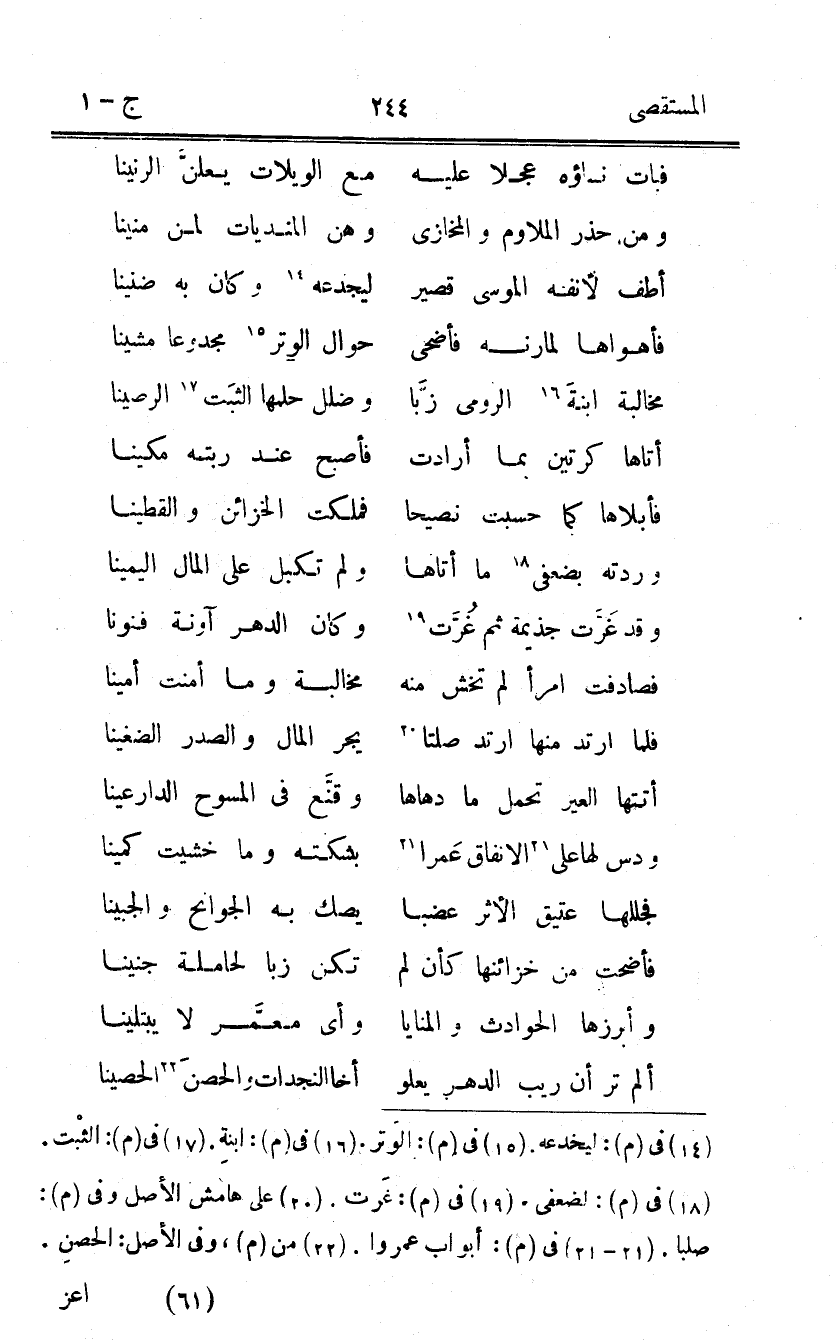 المستقصى ٢٤٤ ج – ١
فبات نساؤه عجلا عليه مع الويلات يعلنَّ الرنينا
و من حذر الملاوم و المخازى و هن المنديات لمن منينا
أطف لأنفه الموسى قصير ليجدعه ١٤ و كان به ضنينا
فأهواها لمارنه فأضحى حوال الوتر ١٥ مجدوعا مشينا
مخالبة ابنةَ ١٦ الرومى زبَّا و ضلل حلمها الثبَت ١٧ الرصينا
أتاها كرتين بما أرادت فأصبح عند ربته مكينا
فأبلاها كما حسبت نصيحا فملكت الخزائن و القطينا
و ردته بضعفى ١٨ ما أتاها و لم تكبل على المال اليمينا
و قد غَرَّت جذيمة ثم غُرَّت ١٩ و كان الدهر آونة فنونا
فصادفت امرأ لم تخش منه مخالبة و ما أمنت أمينا
فلما ارتد منها ارتد صلتا ٢٠ يجر المال و الصدر الضغينا
أتتها العير تحمل ما دهاها و قنَّع فى المسوح الدارعينا
و دس لها على ٢١ الانفاق عَمرا ٢١ بشكته و ما خشيت كمينا
فجللها عتيق الأثر عضبا يصك به الجوانح و الجبينا
فأضحت من خزائنها كأن لم تكن زبا لحاملة جنينا
و أبرزها الحوادث و المنايا و أى معمَّر لا يبتلينا
ألم تر أن ريب الدهر يعلو أخا النجدات و الحصنَ ٢٢ الحصينا
(١٤) فى (م): ليخدعه. (١٥) فى (م): الوَتر. (١٦) فى (م): ابنةِ. (١٧) فى (م): الثبْت.
(١٨) فى (م): لضعفى. (١٩) فى (م): غَرت. (٢٠) على هامش الأصل و فى (م):
صلبا. (٢١–٢١) فى (م): أبواب عمروا. (٢٢) من (م)، و فى الأصل: الحصنِ.
(٦١) اعز